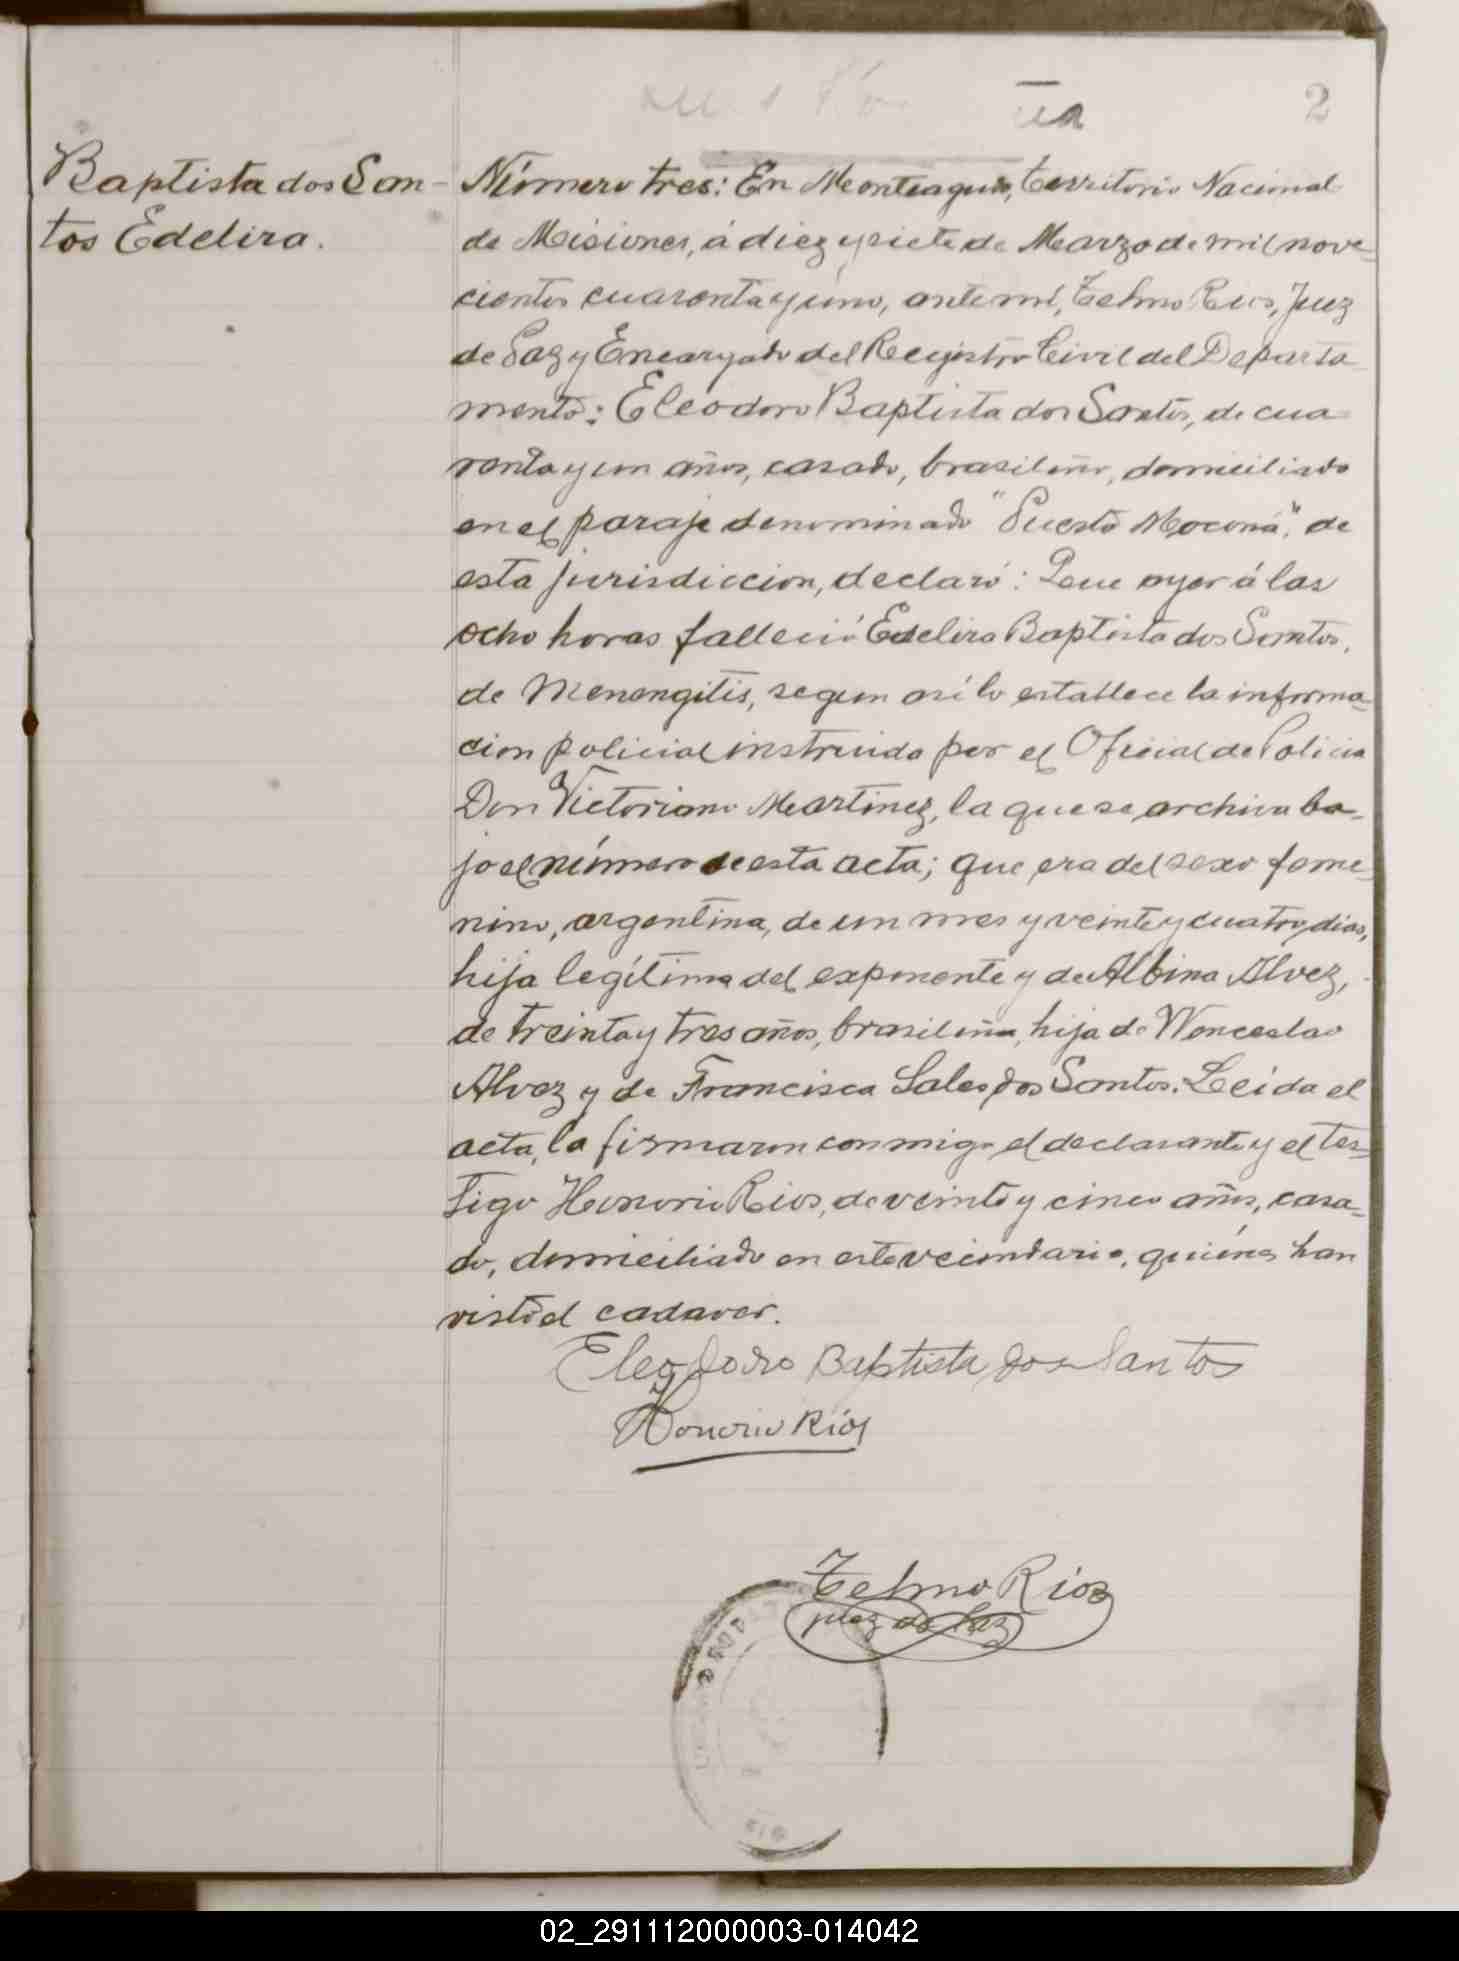 2
Baptista dos San-
tos Edelira.
Número tres: En Monteagudo, territorio Nacional
de Misiones, á diez y siete de Marzo de mil nove-
cientos cuarenta y uno, ante mí, Telmo Rios, Juez
de Paz y Encargado del Registro Civil del Departa-
mento: Eleodoro Baptista dos Santos, de cua-
renta y un años, casado, brasileño, domiciliado
en el paraje denominado "Puerto Moconá", de
esta jurisdiccion, declaró: Que ayer á las
ocho horas falleció Edelira Baptista dos Santos,
de Menengitis, segun así lo establece la informa-
cion policial instruida por el Oficial de Policia
Don Victoriano Martinez, la que se archiva ba-
jo el número de esta acta; que era del sexo feme-
nino, argentina, de un mes y veinte y cuatro dias,
hija legítima del exponente y de Albina Alvez,
de treinta y tres años, brasileña, hija de Wenceslao
Alvez y de Francisca Sales dos Santos. Leida el
acta, la firmaron conmigo el declarante y el tes-
tigo Honorio Rios, de veinte y cinco años, casa-
do, domiciliado en este vecindario, quiénes han
visto el cadaver.
Eleodoro Baptista dos Santos
Honorio Ríos
Telmo Ríos
juez de Paz
02_291112000003-014042